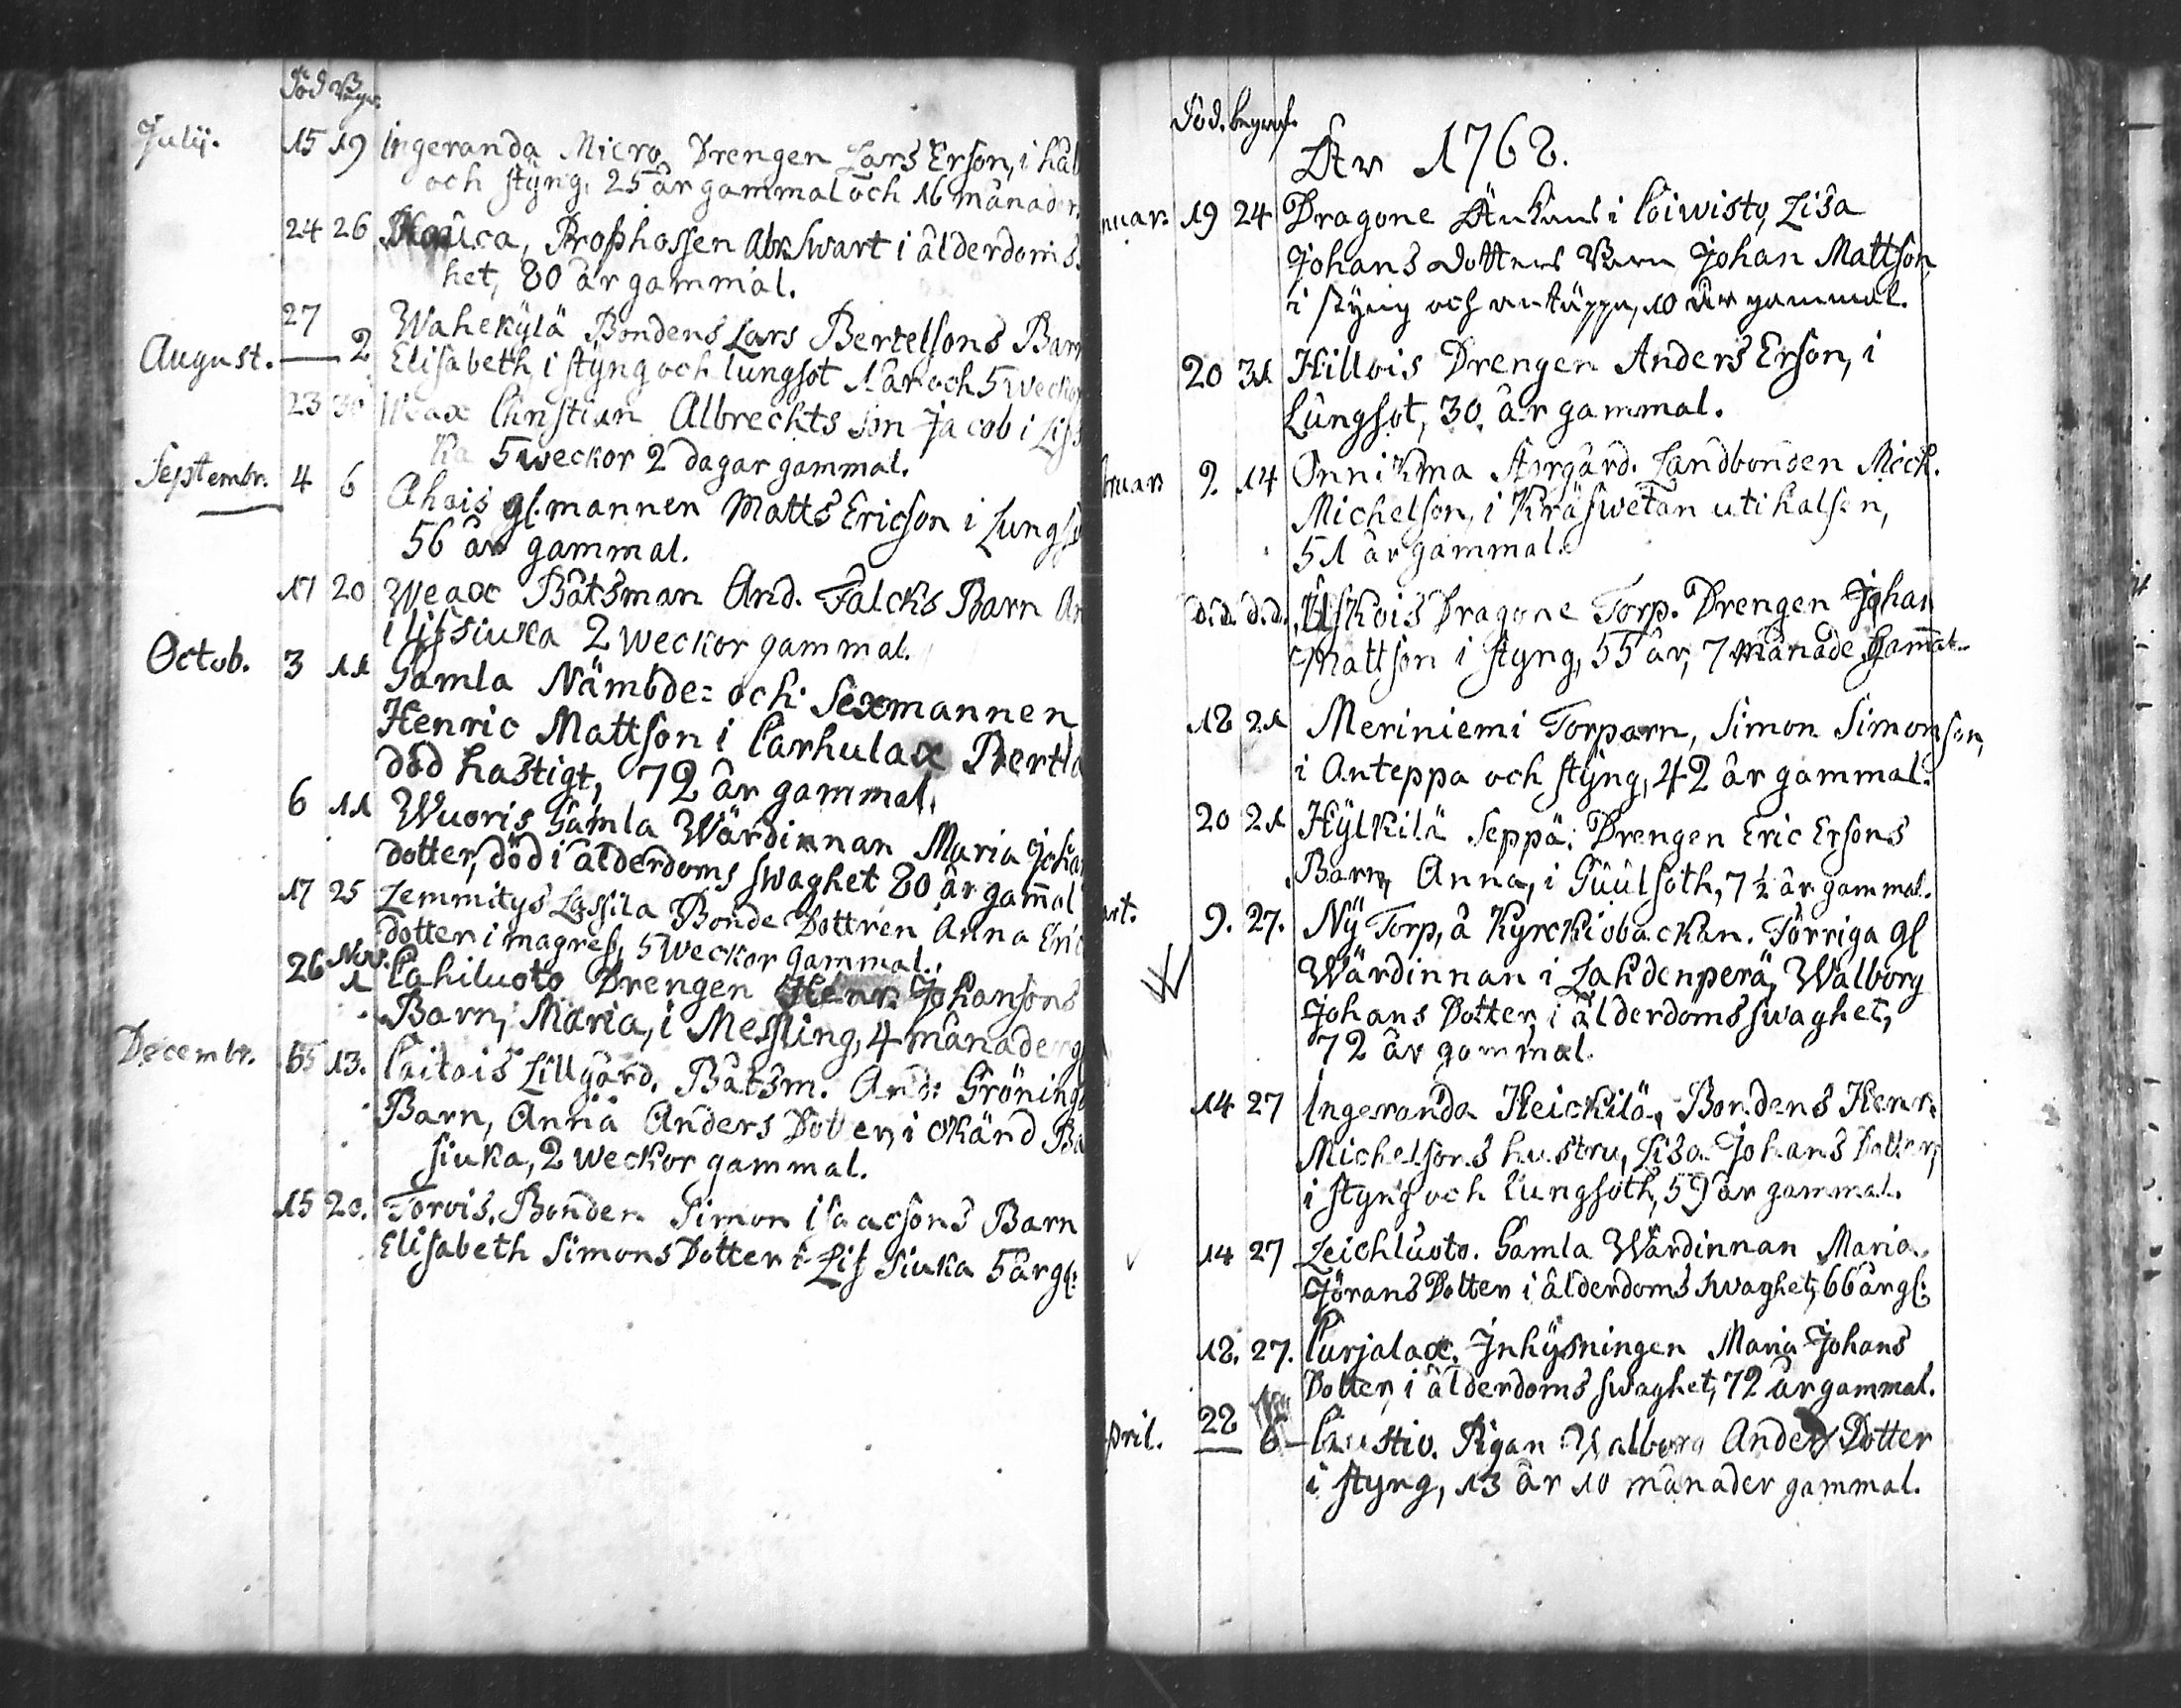 Död Begr.
Julij. 15 19 Ingeranda Micro Drengen Lars Erson, i hål
och styng, 25 år gammal och 16 månader
24 26 Prophossen Abr. Swart i ålderdoms
het, 80 år gammal.
27 Wahekÿlä Bondens Lars Bertelsons Barn
August. — 2 Elisabeth, i styng och lungsot 1 år och 5 weckor
23 30 Weax Christian Albrechts son Jacob i Lifs
ka 5 weckor 2 dagar gammal.
Septembr. 4 6 Ahais gl. mannen Matts Ericson i Lungso
56 år gammal.
17 20 Weax Båtsman And. Falcks Barn An
i lifssiuka 2 weckor gammal.
Octob. 3 11 Gamla Nämbde= och Sexmannen
Henric Mattson i Carhulax Bertla
död hastigt, 72 år gammal.
6 11 Wuoris Gamla Wärdinnan Maria Joha
dotter, död i ålderdoms swaghet 80 år gamal
17 25 Lemmitys Lassila Bonde Dottren Anna Eric
dotter i magref, 5 weckor gammal.
26 Nov. 1 Cahiluoto Drengen Henr. Johansons
Barn, Maria, i Messling, 4 månader g
Decembr. 13. Caitais Lillgård. Båtsm. And: Gröning
Barn, Anna Anders Dotter, i okänd Ba
siuka, 2 weckor gammal.
15 20. Torois. Bonden Simon Isaacsons Barn
Elisabeth Simons Dotter i Lifs Siuka 5 år gl:
Död. begraf.
År 1768.
nuar. 19 24 Dragone Änkans i Coiwisto, Lisa
Johans Dotters Barn Johan Mattson
i styng och antäppa, 10 år gammal.
20 31 Hillois Drengen Anders Erson, i
Lungsot, 30 år gammal.
bruar. 9. 14 Onnikma Storgård. Landbonden Mich.
Michelson, i Kräfwetan uti halsen,
51 år gammal.
d.d. d.d. Uskois Dragone Torp. Drengen Johan
Mattson i styng, 55 år, 7 månade gamal.
18 21 Meriniemi Torparn, Simon Simonson,
i Anteppa och styng, 42 år gammal.
20 21 Hÿlkilä Seppä: Drengen Eric Ersons
Barn, Anna, i Guulsoth, 7 ½ år gammal.
art. 9. 27. Nÿ Torp, å Kyrckiobackan. Förriga gl
Wärdinnan i Lahdenperä, Walborg
Johans Dotter, i ålderdoms swaghet,
72 år gammal.
14 27 Ingeranda Heickilä, Bondens Henr.
Michelsons hustru, Lisa Johans Dotter,
i styng och lungsoth, 59 år gammal.
14 27 Leichluoto. Gamla Wärdinnan Maria
Jörans Dotter i ålderdoms swaghet, 66 år gl:
18. 27. Curjalax. Inhÿsningen Maria Johans
Dotter, i ålderdoms swaghet, 72 år gammal.
pril. 28 6 Caustio. Pigan Walborg Anders Dotter
i styng, 13 år 10 månader gammal.